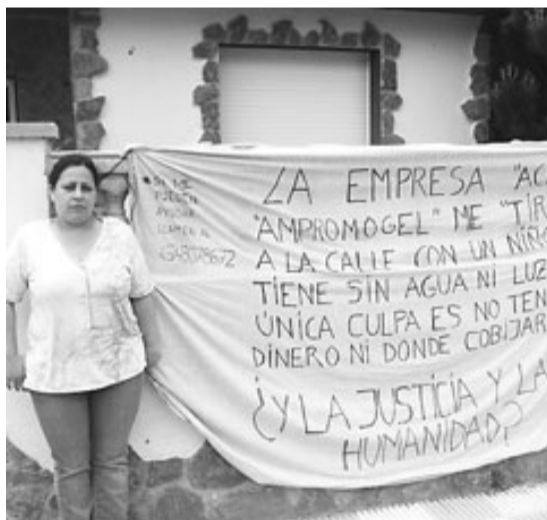 SI ME
PUEDEN
AYUDAR
LLAMEN A
LA EMPRESA "AC
"AMPROMOGEL" ME "TIR
A LA CALLE CON UN NIÑ
TIENE SIN AGUA NI LUZ
ÚNICA CULPA ES NO TEN
DINERO NI DONDE COBIJAR
¿Y LA JUSTICIA Y LA
HUMANIDAD?